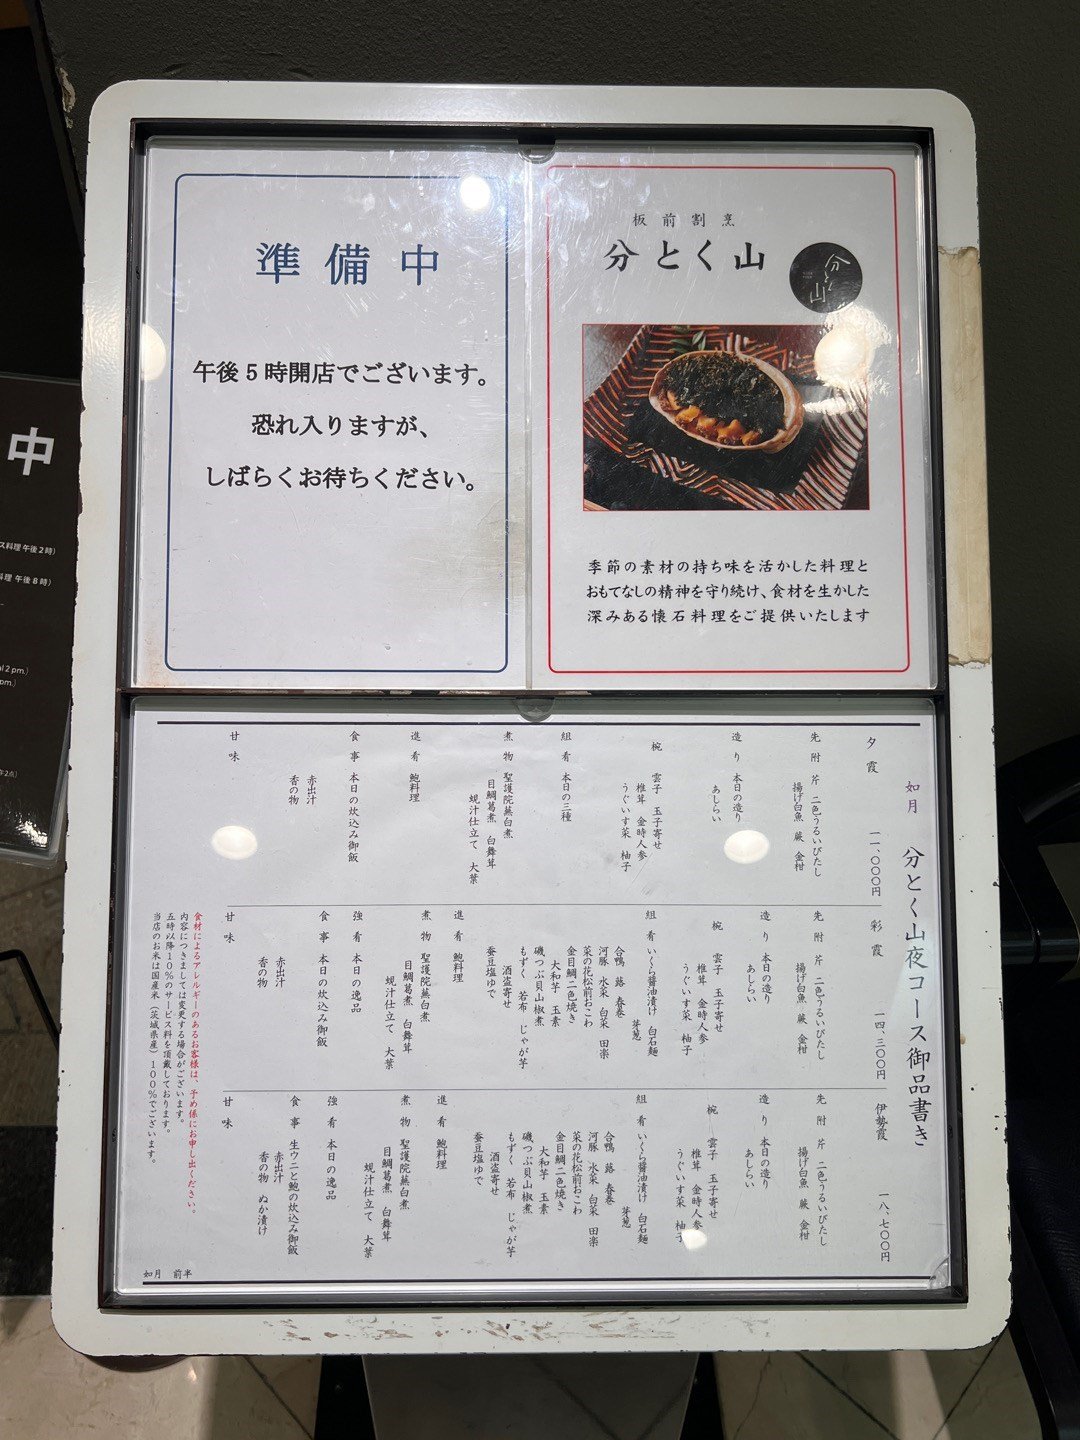 準備中
午後5時開店でございます。
恐れ入りますが、
しばらくお待ちください。
板前割烹
分とく山
分とく山
季節の素材の持ち味を活かした料理と
おもてなしの精神を守り続け、食材を生かした
深みある懐石料理をご提供いたします
如月 分とく山夜コース御品書き
夕霞 一一、〇〇〇円
先附 芹 二色うるいびたし
揚げ白魚 蕨 金柑
造り 本日の造り
あしらい
椀 雲子 玉子寄せ
椎茸 金時人参
うぐいす菜 柚子
組肴 本日の三種
煮物 聖護院蕪白煮
目鯛葛煮 白舞茸
蜆汁仕立て 大葉
進肴 鮑料理
食事 本日の炊込み御飯
赤出汁
香の物
甘味
彩霞 一四、三〇〇円
先附 芹 二色うるいびたし
揚げ白魚 蕨 金柑
造り 本日の造り
あしらい
椀 雲子 玉子寄せ
椎茸 金時人参
うぐいす菜 柚子
組肴 いくら醤油漬け 白石麺
芽葱
合鴨 蕗 春巻
河豚 水菜 白菜 田楽
菜の花松前おこわ
金目鯛二色焼き
大和芋 玉素
磯つぶ貝山椒煮
もずく 若布 じゃが芋
酒盗寄せ
蚕豆塩ゆで
進肴 鮑料理
煮物 聖護院蕪白煮
目鯛葛煮 白舞茸
蜆汁仕立て 大葉
強肴 本日の逸品
食事 本日の炊込み御飯
赤出汁
香の物
甘味
伊勢霞 一八、七〇〇円
先附 芹 二色うるいびたし
揚げ白魚 蕨 金柑
造り 本日の造り
あしらい
椀 雲子 玉子寄せ
椎茸 金時人参
うぐいす菜 柚子
組肴 いくら醤油漬け 白石麺
芽葱
合鴨 蕗 春巻
河豚 水菜 白菜 田楽
菜の花松前おこわ
金目鯛二色焼き
大和芋 玉素
磯つぶ貝山椒煮
もずく 若布 じゃが芋
酒盗寄せ
蚕豆塩ゆで
進肴 鮑料理
煮物 聖護院蕪白煮
目鯛葛煮 白舞茸
蜆汁仕立て 大葉
強肴 本日の逸品
食事 生ウニと鮑の炊込み御飯
赤出汁
香の物 ぬか漬け
甘味
食材によるアレルギーのあるお客様は、予め係にお申し出ください。
内容につきましては変更する場合がございます。
五時以降10%のサービス料を頂戴しております。
当店のお米は国産米(茨城県産)100%でございます。
如月 前半
中
ス料理 午後2時)
料理 午後8時)
al 2 pm.)
pm.)
午2点)